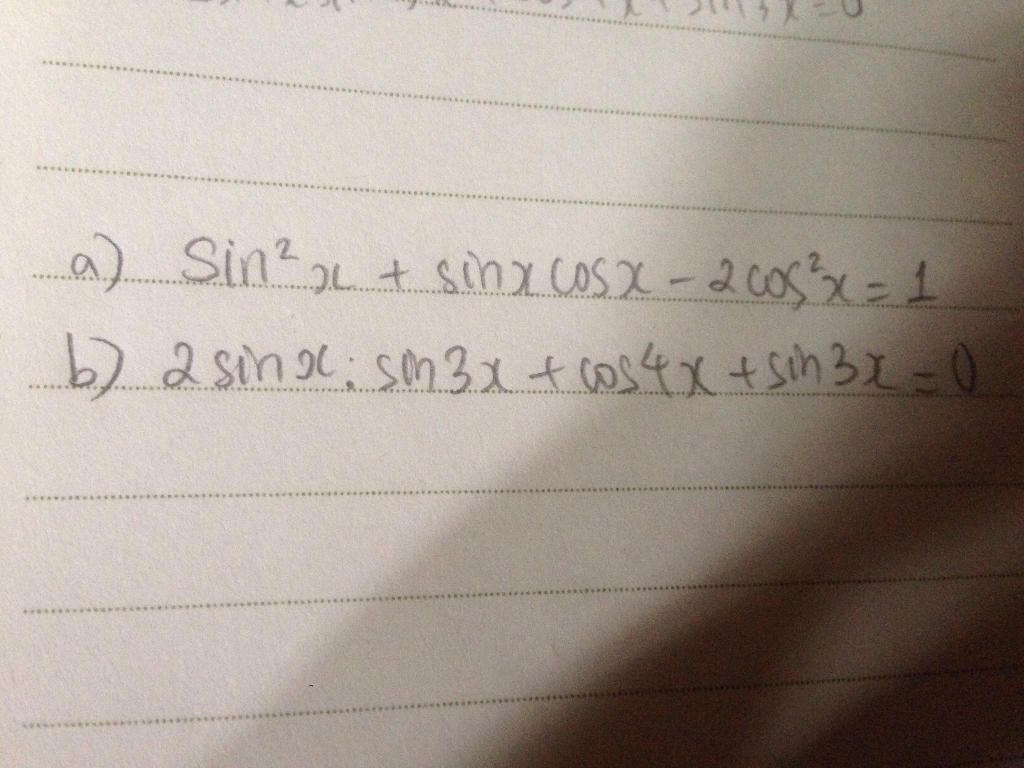 a) Sin²x + sinx cosx - 2cos²x = 1
b) 2sinx . sin3x + cos4x + sin3x = 0